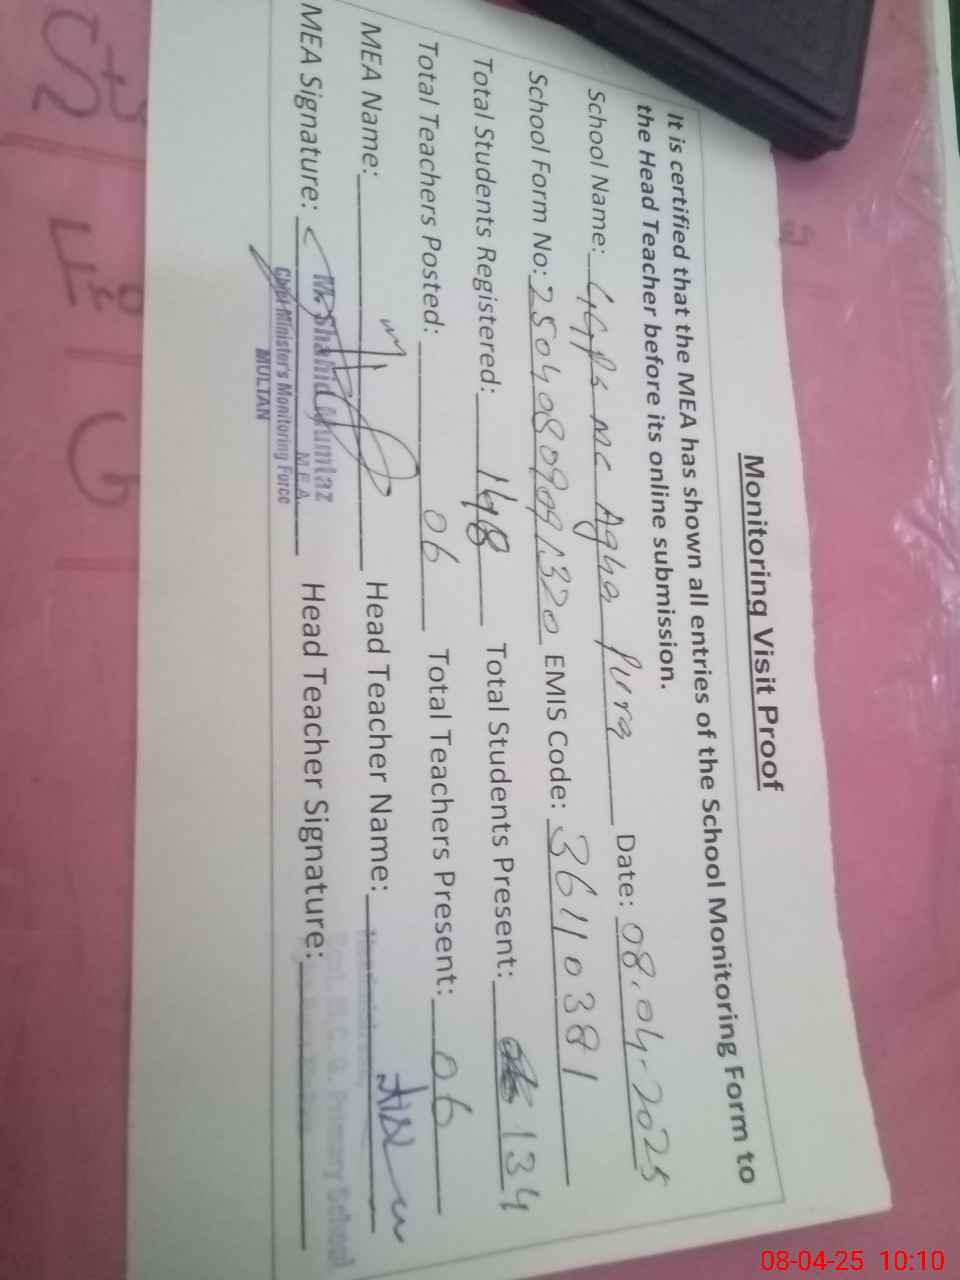 Monitoring Visit Proof
It is certified that the MEA has shown all entries of the School Monitoring Form to
the Head Teacher before its online submission.
School Name: GGPS MC Agha Pura Date: 08.04.2025
School Form No: 25040809091320 EMIS Code: 36110381
Total Students Registered: 148 Total Students Present: 134
Total Teachers Posted: 06 Total Teachers Present: 06
MEA Name: Head Teacher Name:
MEA Signature: Head Teacher Signature:
Mr. Shahid Mumtaz
M.E.A
Chief Minister's Monitoring Force
MULTAN
M.C. G. Primary School
08-04-25 10:10